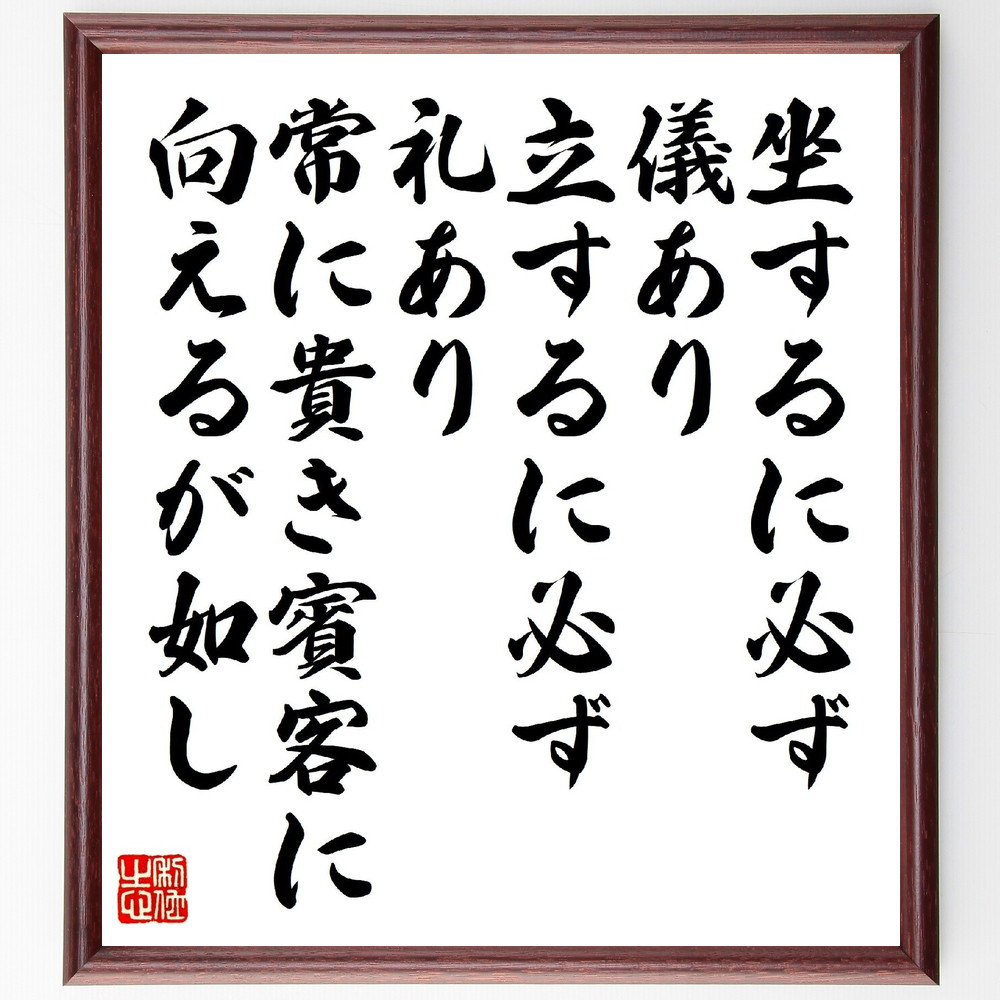 坐するに必ず
儀あり
立するに必ず
礼あり
常に貴き賓客に
向えるが如し